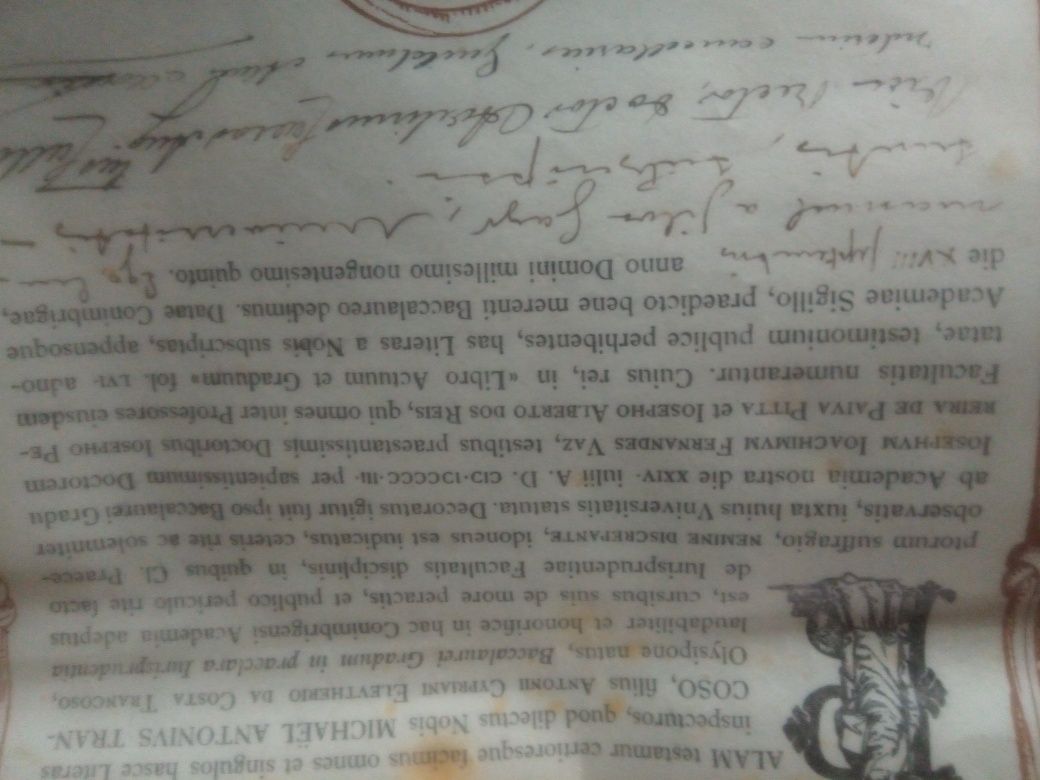 PALAM testamur certioresque facimus omnes et singulos hasce Literas
inspecturos, quod dilectus Nobis MICHAËL ANTONIVS TRAN-
COSO, filius ANTONII CYPRIANI ELEVTHERIO DA COSTA TRANCOSO,
Olysipone natus, Baccalaurei Gradum in praeclara Iurisprudentia
laudabiliter et honorifice in hac Conimbrigensi Academia adeptus
est, cursibus suis de more peractis, et publico periculo rite facto
de Iurisprudentiae Facultatis disciplinis, in quibus Cl. Praece-
ptorum suffragio, NEMINE DISCREPANTE, idoneus est iudicatus, ceteris rite ac solemniter
observatis, iuxta huius Vniversitatis statuta. Decoratus igitur fuit ipso Baccalaurei Gradu
ab Academia nostra die XXIV· iulii A. D. CIƆ·IƆCCCC·III· per sapientissimum Doctorem
IOSEPHVM IOACHIMVM FERNANDES VAZ, testibus praestantissimis Doctoribus IOSEPHO PE-
REIRA DE PAIVA PITTA et IOSEPHO ALBERTO DOS REIS, qui omnes inter Professores eiusdem
Facultatis numerantur. Cuius rei, in «Libro Actuum et Graduum» fol. LVI· adno-
tatae, testimonium publice perhibentes, has Literas a Nobis subscriptas, appensoque
Academiae Sigillo, praedicto bene merenti Baccalaureo dedimus. Datae Conimbrigae,
die XVIII septembris anno Domini millesimo nongentesimo quinto. Ego
a Silva Gayo, Universitatis
subscripsi.
Vice Rector, Doctor